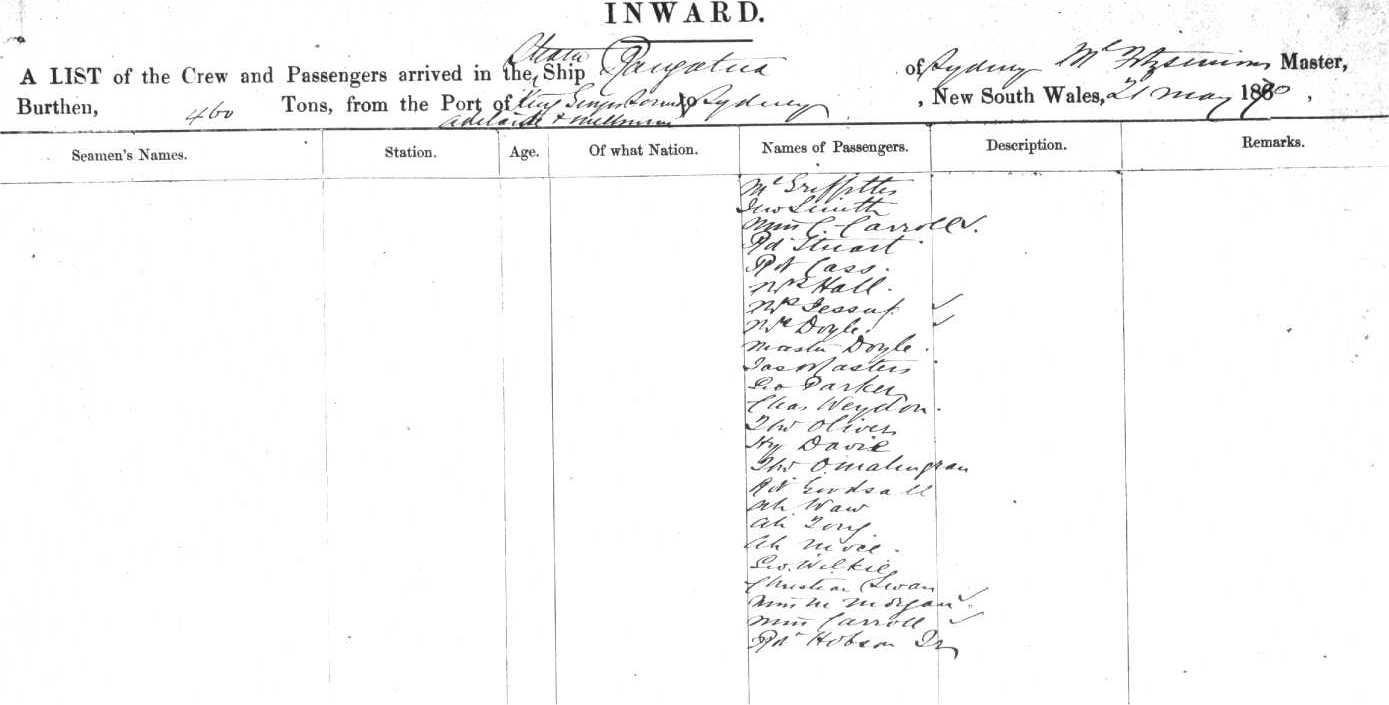 INWARD.
A LIST of the Crew and Passengers arrived in the Ship Rangatira of Sydney Mc Fitzsimons Master,
Burthen, 460 Tons, from the Port of King Georges Sound to Sydney, New South Wales, 21 May 1870,
Adelaide & Melbourne
Seamen's Names. Station. Age. Of what Nation. Names of Passengers. Description. Remarks.
Mr Griffiths
Jno Smith
Miss C. Carroll
Rd Stuart
Rbt Cass.
Mrs Hall.
Mrs Jessup
Mrs Doyle.
Master Doyle.
Jas Masters
Geo Parker
Chas Weydon.
Thos Oliver
Hy Davie
Thos
Rbt Goodsall
Ah Waw
Ah Tong
Ah
Geo. Wilkie
Christian Swan
Miss M Morgan
Miss Carroll
Rd Hobson Jr